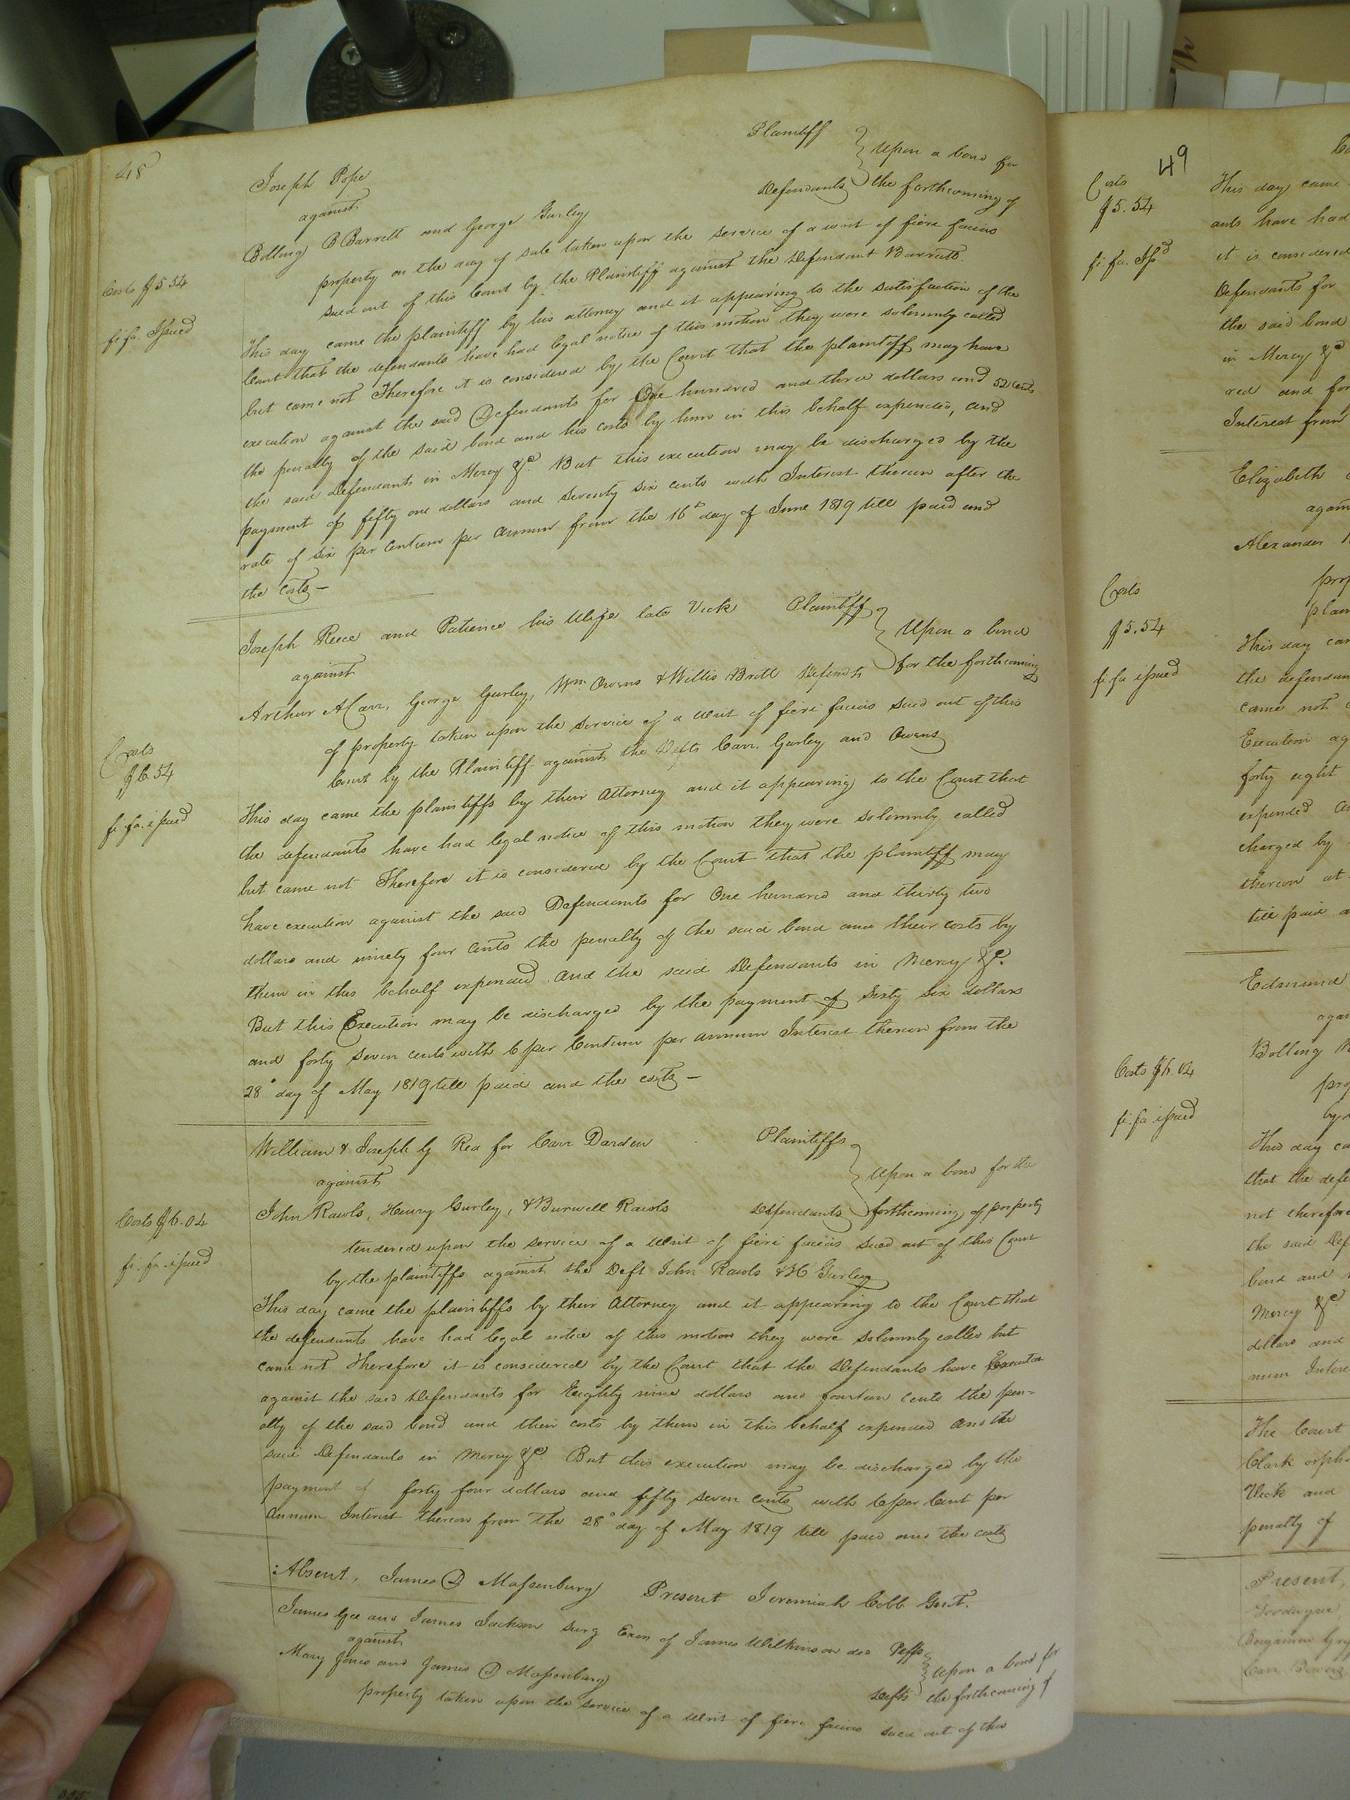 48
Joseph Pope Plaintiff
against Upon a bond for
Bolling B Barrett and George Gurley Defendants the forthcoming of
property on the day of sale taken upon the service of a writ of fieri facias
sued out of this Court by the Plaintiff against the Defendant Barrett
Costs $5.54
fi. fa. Issued
This day came the plaintiff by his attorney and it appearing to the satisfaction of the
Court that the defendants have had legal notice of this motion they were solemnly called
but came not Therefore it is considered by the Court that the plaintiff may have
execution against the said Defendants for One hundred and three dollars and 52 cents
the penalty of the said bond and his costs by him in this behalf expended, and
the said Defendants in Mercy &c But this execution may be discharged by the
payment of fifty one dollars and seventy six cents with Interest thereon after the
rate of six per Centum per Annum from the 16 day of June 1819 till paid and
the costs —
Joseph Reece and Patience his Wife late Vick Plaintiff
against Upon a bond
Arthur A Carr, George Gurley, Wm Owens & Willis Britt Defendts for the forthcoming
of property taken upon the service of a Writ of fieri facias sued out of this
Court by the Plaintiff against the Defts Carr, Gurley and Owens
Costs
$6.54
fi. fa. issued
This day came the plaintiffs by their Attorney and it appearing to the Court that
the defendants have had legal notice of this motion they were solemnly called
but came not Therefore it is considered by the Court that the plaintiff may
have execution against the said Defendants for One hundred and thirty two
dollars and ninety four Cents the penalty of the said bond and their costs by
them in this behalf expended and the said Defendants in Mercy &c.
But this Execution may be discharged by the payment of Sixty Six dollars
and forty seven cents with 6 per Centum per annum Interest thereon from the
28 day of May 1819 till paid and the costs —
William & Joseph G Rea for Carr Darden Plaintiffs
against Upon a bond for the
John Rawls, Henry Gurley, & Burwell Rawls Defendants forthcoming of property
tendered upon the service of a Writ of fieri facias sued out of this Court
by the plaintiffs against the Deft John Rawls & H Gurley
Costs $6.04
fi. fa. issued
This day came the plaintiffs by their Attorney and it appearing to the Court that
the defendants have had legal notice of this motion they were solemnly called but
came not Therefore it is considered by the Court that the Defendants have Execution
against the said Defendants for Eighty nine dollars and fourteen Cents the pen-
alty of the said bond and their costs by them in this behalf expended and the
said Defendants in Mercy &c. But this execution may be discharged by the
payment of forty four dollars and fifty seven cents with 6 per Cent per
Annum Interest thereon from the 28 day of May 1819 till paid and the costs
Absent, James D Massenburg Present Jeremiah Cobb Gent.
James Gee and James Jackson Surg Exors of James Wilkinson decd Plffs
against Upon a bond for
Mary Jones and James D Massenburg Defts the forthcoming of
property taken upon the service of a Writ of fieri facias sued out of this
49
Costs
$5.54
fi. fa. Issd
This day came
ants have had
it is considered
Defendants for
the said bond
in Mercy &c
red and for
Interest from
Elizabeth
again
Alexander
prop
plain
Costs
$5.54
fi. fa issued
This day can
the defendan
came not
Execution ag
forty eight
expended
charged by
thereon at
till paid
Edmund
again
Bolling
prop
by
Costs $6.04
fi. fa issued
This day ca
that the defe
not therefore
the said Def
bond and
Mercy &c
dollars and
num Interes
The Court
Clark orpha
Vick and
penalty of
Present,